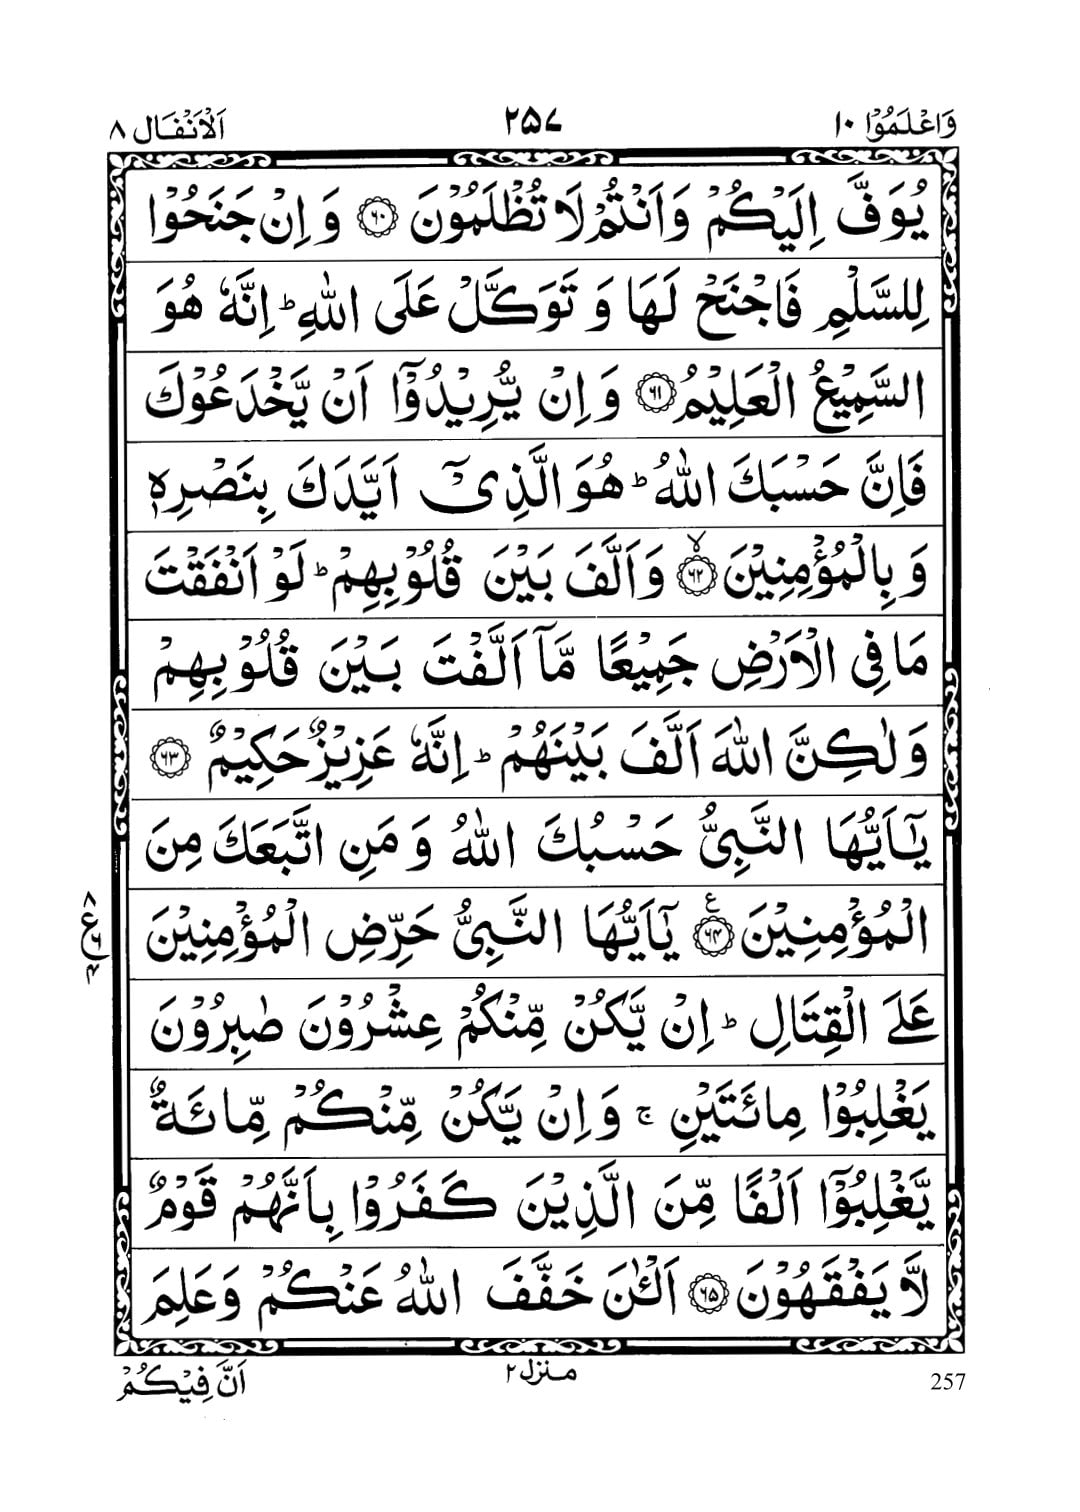 وَاعْلَمُوْۤا ۱۰
۲۵۷
اَلْاَنْفَال ۸
يُوَفَّ اِلَيْكُمْ وَاَنْتُمْ لَا تُظْلَمُوْنَ ﴿۶۰﴾ وَ اِنْ جَنَحُوْا
لِلسَّلْمِ فَاجْنَحْ لَهَا وَ تَوَكَّلْ عَلَى اللّٰهِ ؕ اِنَّهٗ هُوَ
السَّمِيْعُ الْعَلِيْمُ ﴿۶۱﴾ وَ اِنْ يُّرِيْدُوْۤا اَنْ يَّخْدَعُوْكَ
فَاِنَّ حَسْبَكَ اللّٰهُ ؕ هُوَ الَّذِىْۤ اَيَّدَكَ بِنَصْرِهٖ
وَ بِالْمُؤْمِنِيْنَ ﴿۶۲﴾ ۙ وَ اَلَّفَ بَيْنَ قُلُوْبِهِمْ ؕ لَوْ اَنْفَقْتَ
مَا فِى الْاَرْضِ جَمِيْعًا مَّاۤ اَلَّفْتَ بَيْنَ قُلُوْبِهِمْ
وَلٰكِنَّ اللّٰهَ اَلَّفَ بَيْنَهُمْ ؕ اِنَّهٗ عَزِيْزٌ حَكِيْمٌ ﴿۶۳﴾
يٰۤاَيُّهَا النَّبِىُّ حَسْبُكَ اللّٰهُ وَ مَنِ اتَّبَعَكَ مِنَ
الْمُؤْمِنِيْنَ ﴿۶۴﴾ ع يٰۤاَيُّهَا النَّبِىُّ حَرِّضِ الْمُؤْمِنِيْنَ
۸ ع ۶ ۴
عَلَى الْقِتَالِ ؕ اِنْ يَّكُنْ مِّنْكُمْ عِشْرُوْنَ صٰبِرُوْنَ
يَغْلِبُوْا مِائَتَيْنِ ۚ وَ اِنْ يَّكُنْ مِّنْكُمْ مِّائَةٌ
يَّغْلِبُوْۤا اَلْفًا مِّنَ الَّذِيْنَ كَفَرُوْا بِاَنَّهُمْ قَوْمٌ
لَّا يَفْقَهُوْنَ ﴿۶۵﴾ اَلْـٰٔنَ خَفَّفَ اللّٰهُ عَنْكُمْ وَ عَلِمَ
257
منزل ۲
اَنَّ فِيْكُمْ